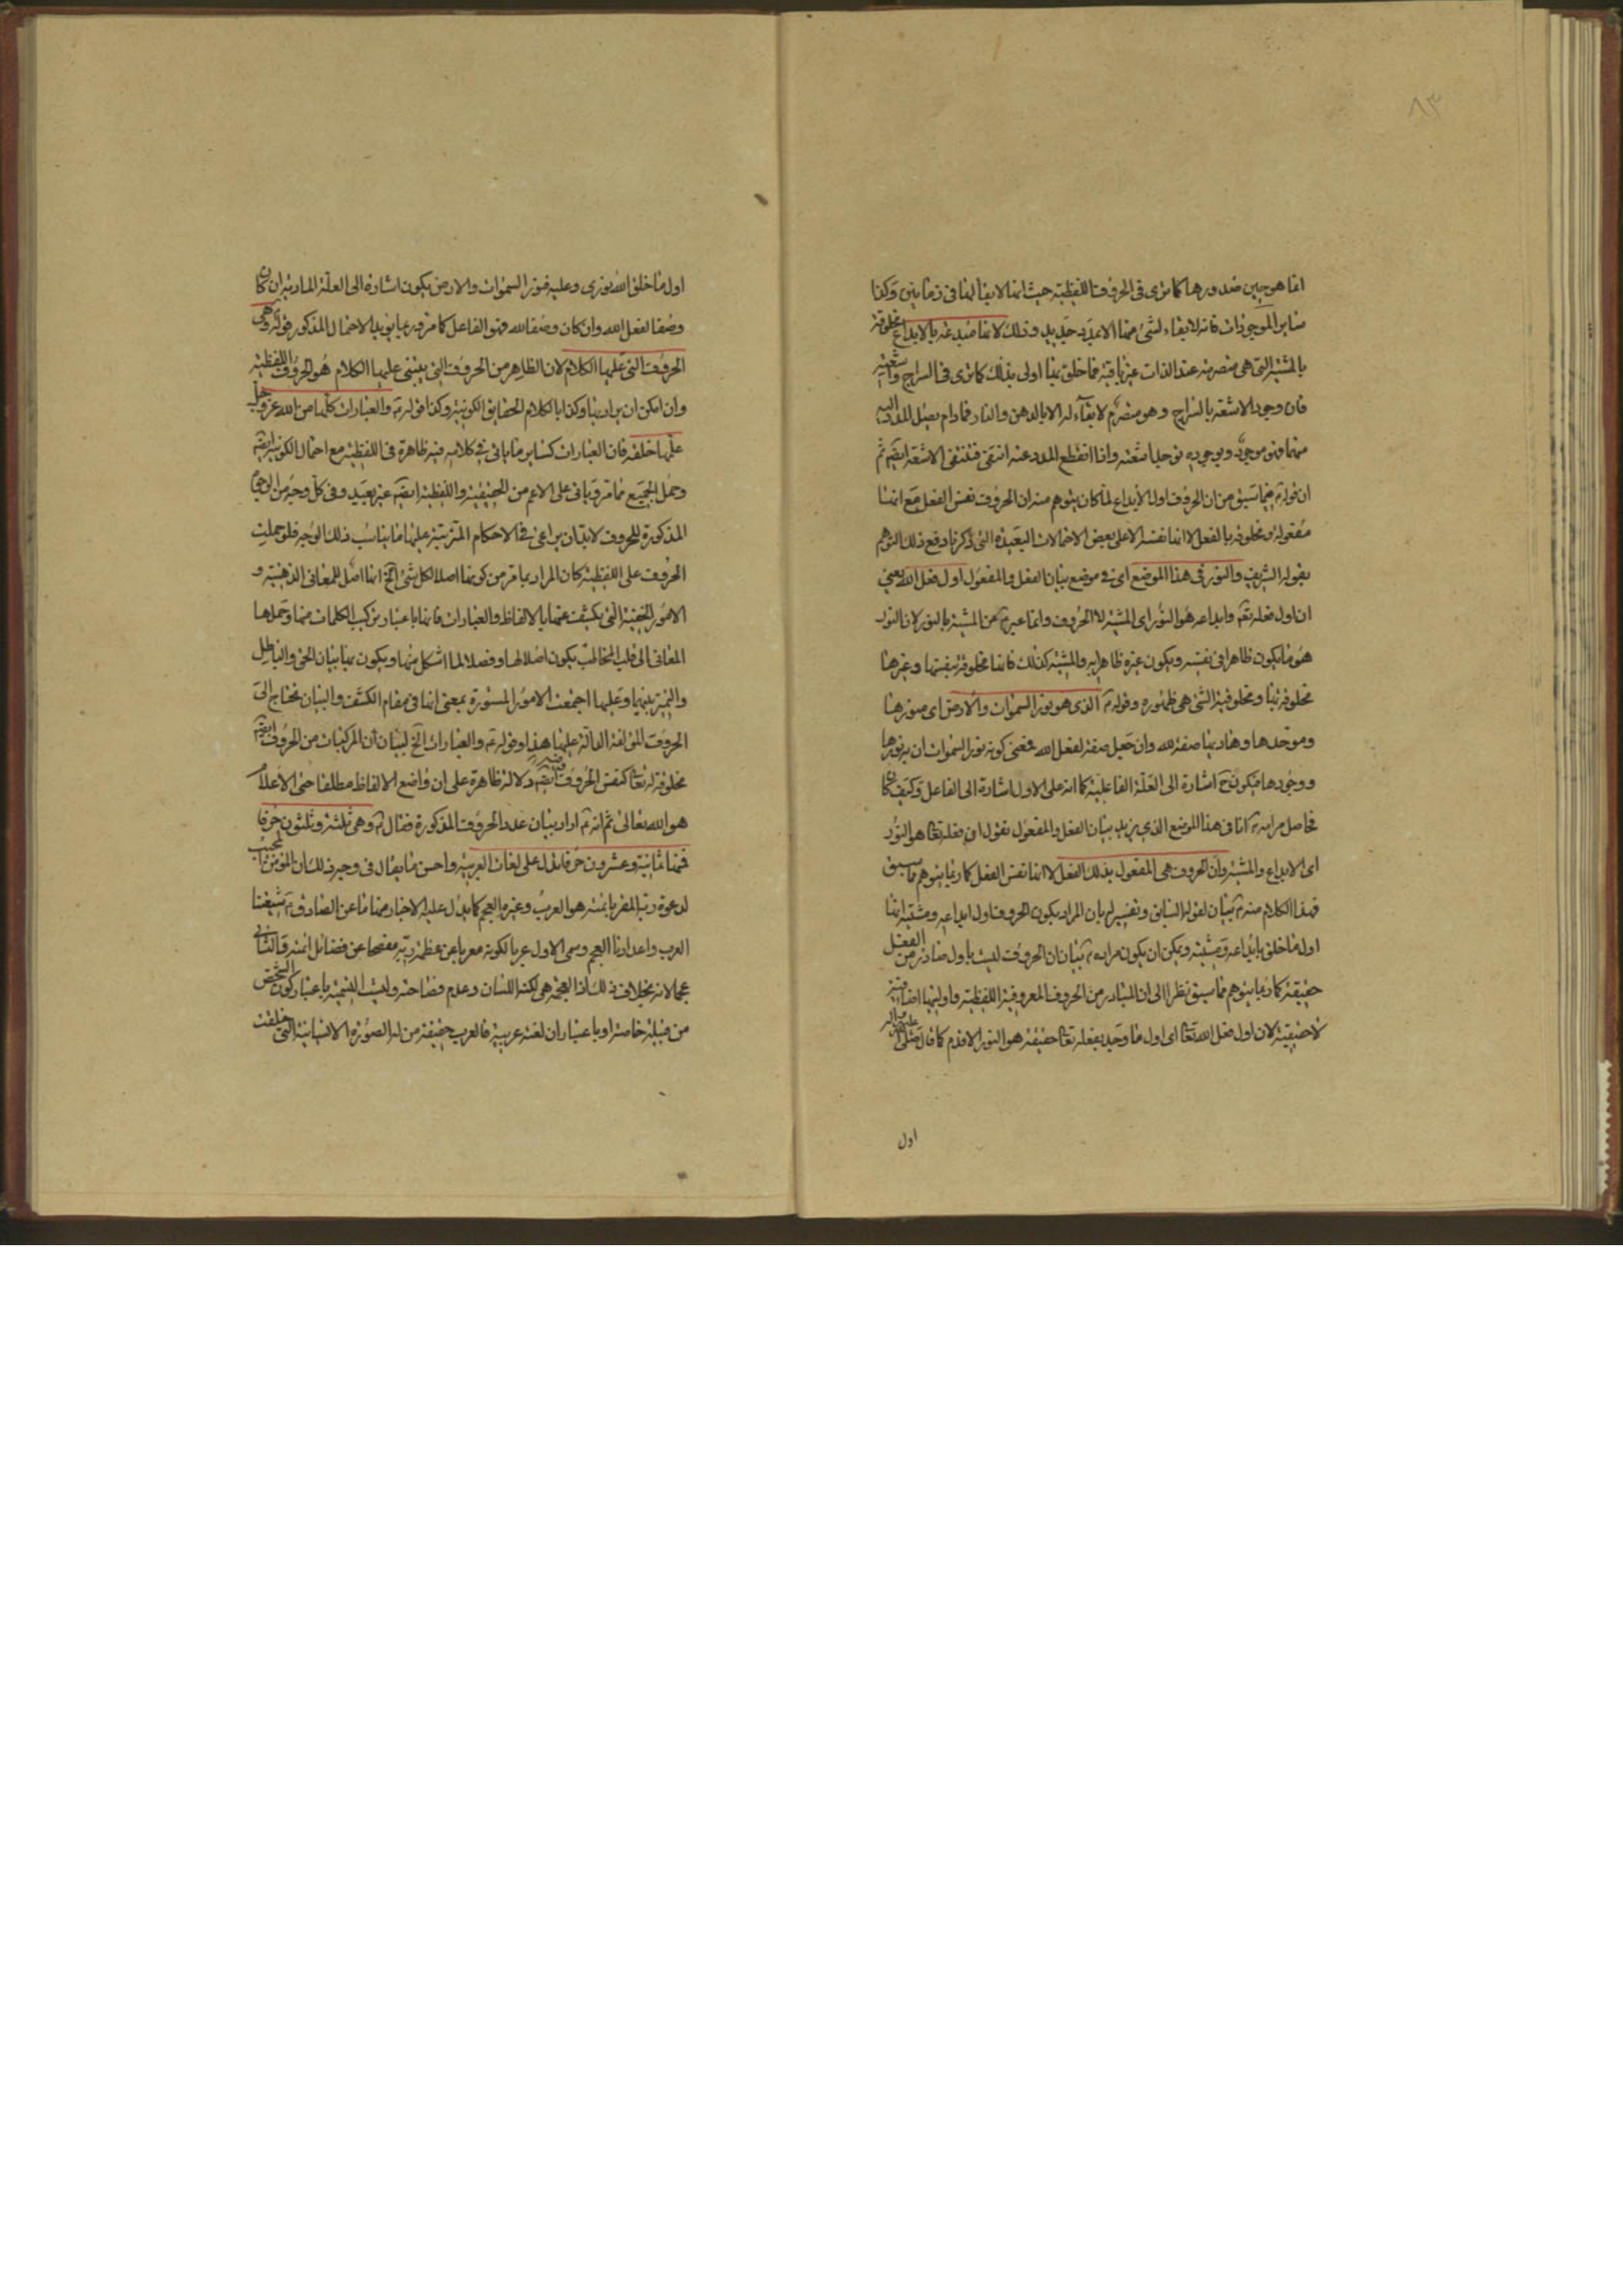 ٨٣
انما هو حين صدورها كما نرى فى الحروف اللفظية حيث انها لا بقاء لها فى زمانين وكذا
ساير الموجودات فانه لا بقاء لشئ منها الا بمدد جديد وذلك لانها مبدعة بالابداع مخلوقة
بالمشية التى هى منصرمة عند الذات غير باقية فما خلق بها اولى بذلك كما نرى فى السراج واشعته
فان وجود الاشعة بالسراج وهو منصرم لا بقاء له الا بالدهن والنار فما دام يصل المدد اليه
منهما فهو موجود وبوجوده توجد اشعته واذا انقطع المدد عنه انتفى فتنتفى الاشعة ايضا ثم
ان قوله ع فيما سبق من ان الحروف اول الابداع لما كان يتوهم منه ان الحروف نفس الفعل مع انها
مفعولة ومخلوقة بالفعل لا انها نفسه الا على بعض الاحتمالات البعيدة التى ذكرنا دفع ذلك التوهم
بقوله الشريف والنور فى هذا الموضع اى فى موضع بيان الفعل والمفعول اول فعل الله يعنى
ان اول فعله تعالى وابداعه هو النور اى المشية لا الحروف وانما عبر ع عن المشية بالنور لان النور
هو ما يكون ظاهرا فى نفسه ويكون غيره ظاهرا به والمشية كذلك فانها مخلوقة بنفسها وغيرها
مخلوقة بها ومخلوقية الشئ هى ظهوره وقوله ع الذى هو نور السموات والارض اى منورها
وموجدها وهاديها صفة لله وان جعل صفة لفعل الله فمعنى كونه نور السموات ان به نورها
ووجودها فيكون ح اشارة الى العلة الفاعلية كما انه على الاول اشارة الى الفاعل وكيف كان
فحاصل مرامه ع انا فى هذا الموضع الذى نريد بيان الفعل والمفعول نقول ان فعله تعالى هو النور
اى الابداع والمشية وان الحروف هى المفعول بذلك الفعل لا انها نفس الفعل كما ربما يتوهم مما سبق
فهذا الكلام منه ع بيان لقوله السابق وتفسير له بان المراد بكون الحروف اول ابداعه ومشيته انها
اول ما خلق بابداعه ومشيته ويمكن ان يكون مرامه ع بيان ان الحروف ليست باول صادر من الفعل
حقيقة كما ربما يتوهم مما سبق نظرا الى ان المتبادر من الحروف المعروفية اللفظية واوليتها اضافية
لا حقيقية لان اول فعل الله تعالى اى اول ما وجد بفعله تعالى حقيقة هو النور الاقدم كما قال صلى الله عليه واله
اول
اول ما خلق الله نورى وعليه فنور السموات والارض يكون اشارة الى العلة المادية ان كان
وصفا لفعل الله وان كان وصفا لله فهو الفاعل كما مر وربما يؤيد الاحتمال المذكور قوله ع وهى
الحروف التى عليها الكلام لان الظاهر من الحروف التى يبتنى عليها الكلام هو الحروف اللفظية
وان امكن ان يراد بها وكذا بالكلام الحقايق الكونية وكذا قوله ع والعبارات كلها من الله عز وجل
علمها خلقه فان العبارات كساير ما ياتى فى كلامه فيه ظاهرة فى اللفظية مع احتمال الكونية ايضا
وحمل الجميع مما مر وياتى على الاعم من الحقيقية واللفظية ايضا غير بعيد وفى كل وجه من الوجوه
المذكورة للحروف لابد ان يراعى فى الاحكام المترتبة عليها ما يناسب ذلك الوجه فلو حملت
الحروف على اللفظية كان المراد بما مر من كونها اصلا لكل شئ الخ انها اصل للمعانى الذهنية و
الامور الخفية التى يكشف عنها بالالفاظ والعبارات فانها باعتبار تركيب الكلمات منها وحملها
المعانى الى قلب المخاطب يكون اصلا لها وفصلا لما اشكل منها ويكون بها بيان الحق والباطل
والتميز بينهما وعليها اجتمعت الامور المستورة بمعنى انها فى مقام الكشف والبيان تحتاج الى
الحروف المؤلفة الدالة عليها هذا وقوله ع والعبارات الخ لبيان ان المركبات من الحروف ايضا
مخلوقة له تعالى كنفس الحروف وفيه ايضا دلالة ظاهرة على ان واضع الالفاظ مطلقا حتى الاعلام
هو الله تعالى ثم انه ع اراد بيان عدد الحروف المذكورة فقال ع وهى ثلثة وثلثون حرفا
فمنها ثمانية وعشرون حرفا تدل على لغات العربية واحسن ما يقال فى وجه ذلك ان المؤمن المجيب
لدعوة ربه المقر بائمته هو العرب وغيره العجم كما يدل عليه الاخبار منها ما عن الصادق ع شيعتنا
العرب واعداؤنا العجم وسمى الاول عربا لكونه معربا عن عظمة ربه مفصحا عن فضائل ائمته والثانى
عجما لانه بخلاف ذلك اذ العجمة هى لكنة اللسان وعدم فصاحته وليست التسمية باعتبار كون الشخص
من قبيلة خاصة او باعتبار ان لغته عربية فالعرب حقيقة من له الصورة الانسانية التى خلقت